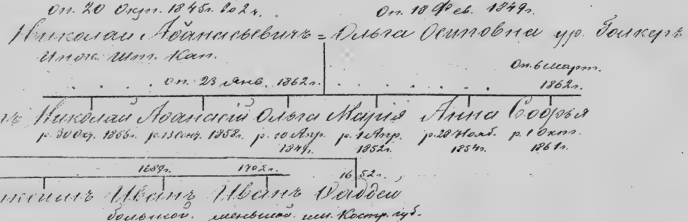 Оп. 20 Окт. 1845г. 202г. Оп. 18 Фев. 1849г.
Николай Афанасьевичъ = Ольга Осиповна ур. Голкеръ
Инж. Шт. Кап.
Оп. 23 Янв. 1862г. Оп. 6 Март. 1862г.
Николай Афанасій Ольга Марія Анна Софья
р. 30 1856г. р. 1858г. р. 10 Апр. 1849г. р. 1 Апр. 1852г. р. 20 Нояб. 1854г. р. 1 Окт. 1861г.
1702г. 1652г.
Иванъ Иванъ Фаддей
большой. меньшой. им. Костр. губ.